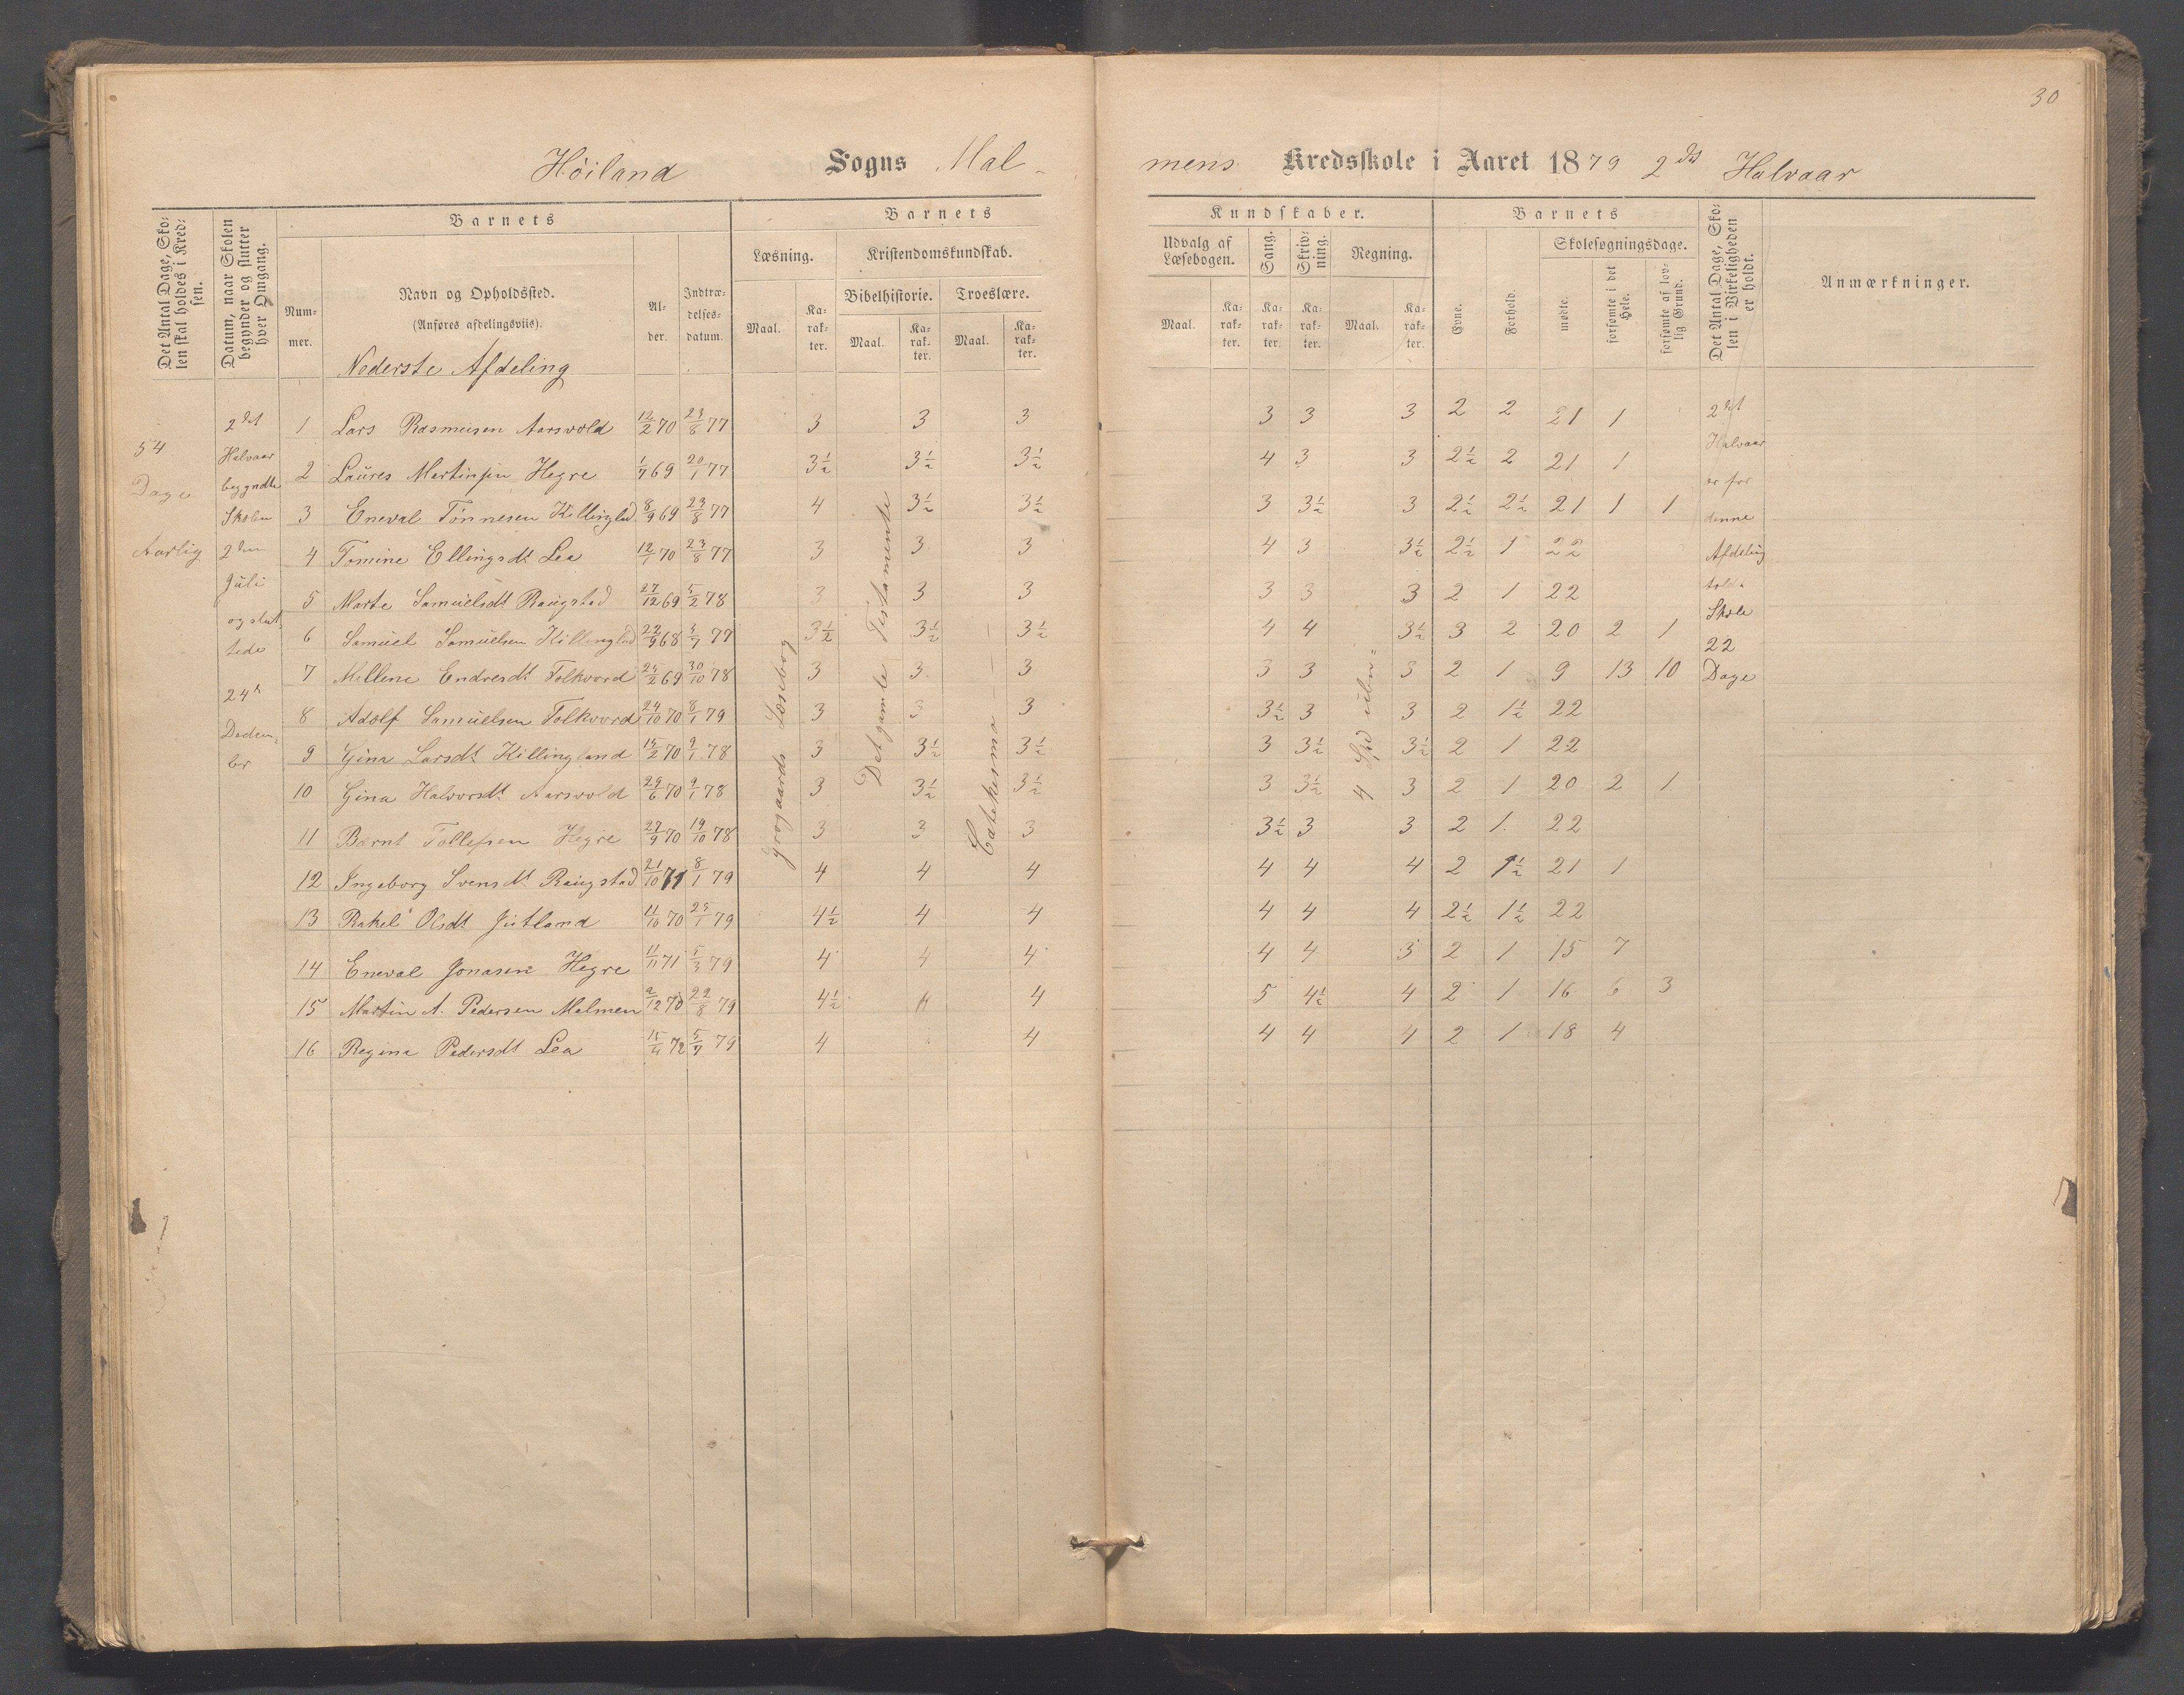 30
Høiland Sogns Mal-
mens Kredsskole i Aaret 1879 2det Halvaar
Det Antal Dage, Skolen skal holdes i Kredsen.
Datum, naar Skolen begynder og slutter hver Omgang.
Barnets
Nummer.
Navn og Opholdssted.
(Anføres afdelingsviis).
Alder.
Indtrædelsesdatum.
Barnets
Læsning.
Maal.
Karakter.
Kristendomskundskab.
Bibelhistorie.
Maal.
Karakter.
Troeslære.
Maal.
Karakter.
Kundskaber.
Udvalg af Læsebogen.
Maal.
Karakter.
Sang.
Karakter.
Skrivning.
Karakter.
Regning.
Maal.
Karakter.
Barnets
Evne.
Forhold.
Skolesøgningsdage.
mødte.
forsømte i det Hele.
forsømte af lovlig Grund.
Det Antal Dage, Skolen i Virkeligheden er holdt.
Anmærkninger.
Nederste Afdeling
54
Dage
Aarlig
2det
Halvaar
begyndte
Skolen
2den
Juli
og slut
tede
24de
Decem
br
1 Lars Rasmusen Aarsvold 12/2 70 23/8 77 3 3 3 3 3 3 2 2 21 1
2 Laures Martinsen Hegre 1/7 69 20/1 77 3½ 3½ 3½ 4 3 3 2½ 2 21 1
3 Eneval Tønnesen Killingland 8/9 69 23/8 77 4 3½ 3½ 3 3½ 3 2½ 2½ 21 1 1
4 Tomine Ellingsdt Lea 12/1 70 23/8 77 3 3 3 4 3 3½ 2½ 1 22
5 Marte Samuelsdt Raugstad 27/12 69 5/2 78 3 3 3 3 3 3 2 1 22
6 Samuel Samuelsen Killingland 22/9 68 3/7 77 3½ 3½ 3½ 4 4 3½ 3 2 20 2 1
7 Mellene Endresdt Folkvord 25/2 69 30/10 78 3 3 3 3 3 3 2 1 9 13 10
8 Adolf Samuelsen Folkvord 24/10 70 8/1 79 3 3 3 3½ 3 3 2 1½ 22
9 Gina Larsdt Killingland 15/2 70 9/1 78 3 3½ 3½ 3 3½ 3½ 2 1 22
10 Gina Halvorsdt Aarsvold 29/6 70 9/1 78 3 3½ 3½ 3 3½ 3 2 1 20 2 1
11 Bernt Tollefsen Hegre 27/9 70 19/10 78 3 3 3 3½ 3 3 2 1 22
12 Ingeborg Svensdt Raugstad 21/10 71 8/1 79 4 4 4 4 4 4 2 1½ 21 1
13 Rakel Olsdt Jutland 11/10 70 25/1 79 4½ 4 4 4 4 4 2½ 1½ 22
14 Eneval Jonasen Hegre 11/11 71 5/3 79 4 4 4 4 4 3 2 1 15 7
15 Martin A. Pedersen Malmen 2/12 70 22/8 79 4½ 4 4 5 4½ 4 2 1 16 6 3
16 Regina Pedersdt Lea 15/4 72 5/7 79 4 4 4 4 4 2 1 18 4
Læsebog
Det gamle Testamente
4
2det
Halvaar
er for
denne
Afdeling
holdt
Skole
22
Dage